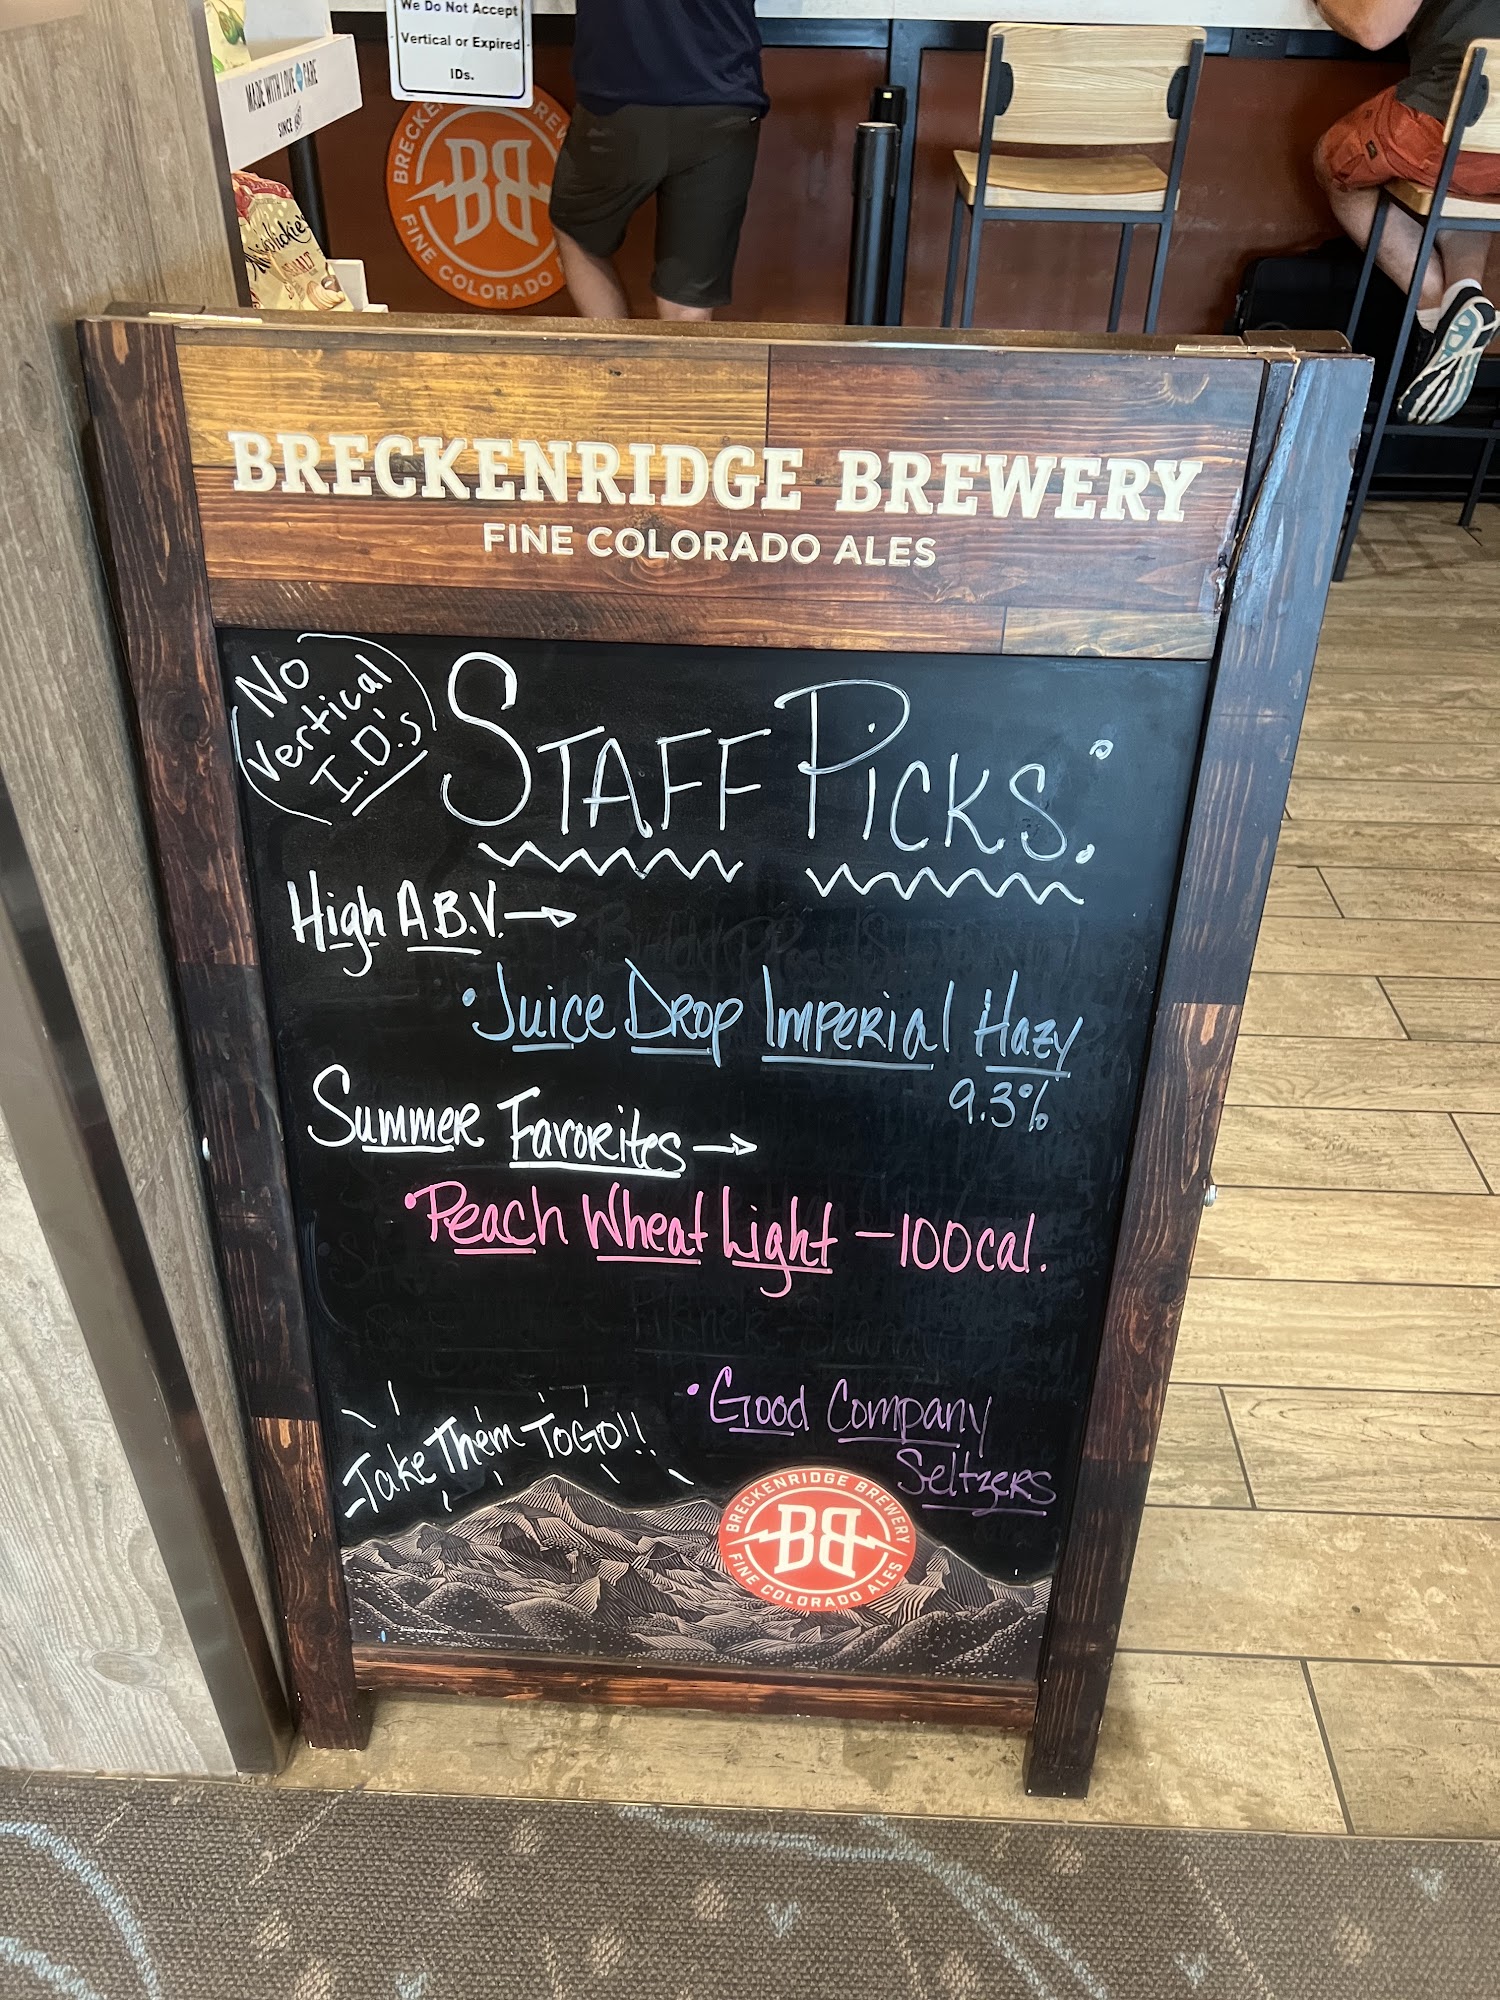 We Do Not Accept
Vertical or Expired
IDs.
MADE WITH LOVE CARE
FINE COLORADO
BRECKENRIDGE BREWERY
FINE COLORADO ALES
No
Vertical
I.D.'s
STAFF PiCKS:
High A.B.V.
• JuiCE DROP IMPERial HAZy
9.3%
SUMMER FAVORites
• Peach Wheat Light - 100cal.
• Good Company
Seltzers
Take Them ToGo!!
BRECKENRIDGE BREWERY
BB
FINE COLORADO ALES